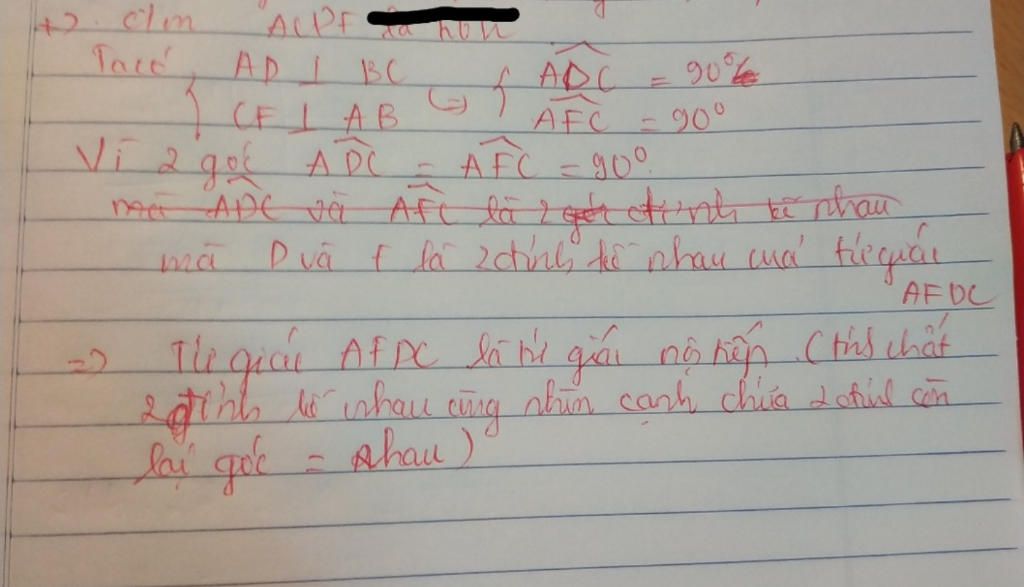 +) C/m ACDF
Ta có { AD ⊥ BC => { ADC = 90°
CF ⊥ AB AFC = 90°
Vì 2 góc ADC = AFC = 90°
mà ADC và AFC là 2 góc đỉnh kề nhau
mà D và F là 2 đỉnh kề nhau của tứ giác
AFDC
=> Tứ giác AFDC là tứ giác nội tiếp (tính chất
2 đỉnh kề nhau cùng nhìn cạnh chứa 2 đỉnh còn
lại góc = nhau)